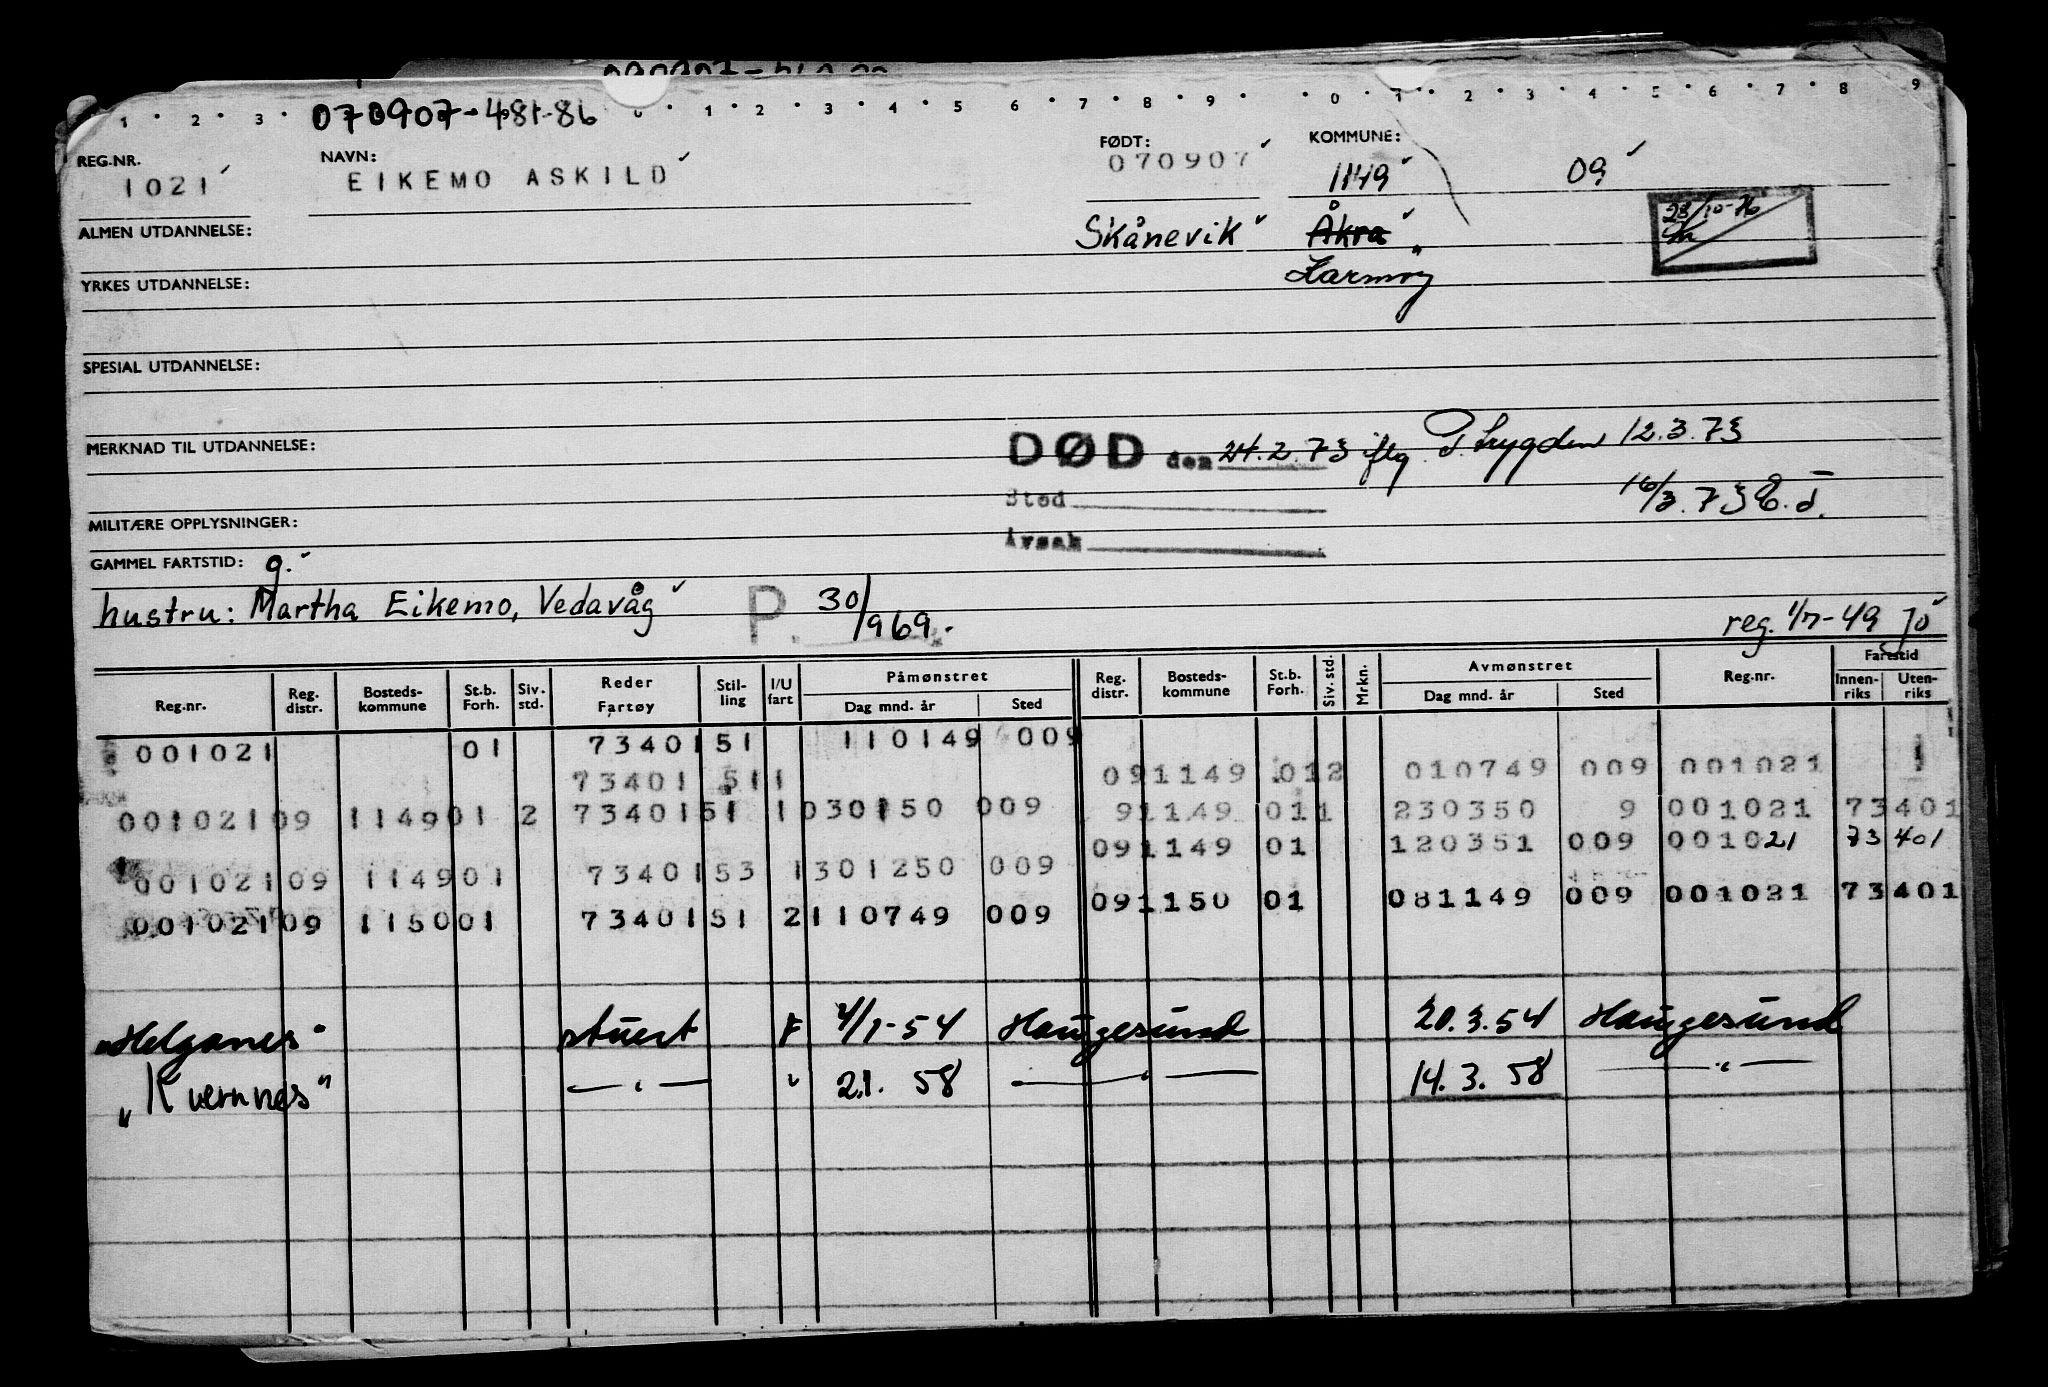 070907-481-86
1 2 3 0 1 2 3 4 5 6 7 8 9 0 1 2 3 4 5 6 7 8 9
REG.NR. NAVN: FØDT: KOMMUNE:
1021 EIKEMO ASKILD 070907 1149 09
ALMEN UTDANNELSE: Skånevik Åkra
Karmøy
23/10-76
YRKES UTDANNELSE:
SPESIAL UTDANNELSE:
MERKNAD TIL UTDANNELSE:
DØD den 24.2.73 iflg P.trygden 12.3.73
Sted 16/3.73
Årsak
MILITÆRE OPPLYSNINGER:
GAMMEL FARTSTID: g.
hustru: Martha Eikemo, Vedavåg P. 30/969. reg. 1/7-49
Reg.nr. Reg. distr. Bosteds-kommune St.b. Forh. Siv. std. Reder Fartøy Stil-ling I/U fart Påmønstret Dag mnd. år Sted Reg. distr. Bosteds-kommune St.b. Forh. Siv. std. Mrkn. Avmønstret Dag mnd. år Sted Reg.nr. Fartstid Innen-riks Uten-riks
001021 01 73401 51 110149 009
73401 511 091149 012 010749 009 001021 1
001021 09 1149 01 2 73401 51 1 030150 009 91149 011 230350 9 001021 73401
091149 01 120351 009 001021 73 401
001021 09 1149 01 73401 53 1 301250 009
091150 01 081149 009 001021 73401
001021 09 1150 01 73401 51 2 110749 009
"Helganes" stuert F 4/1-54 Haugesund 20.3.54 Haugesund
"Kvernnes" — " — " 2.1. 58 — " — 14.3.58 — " —